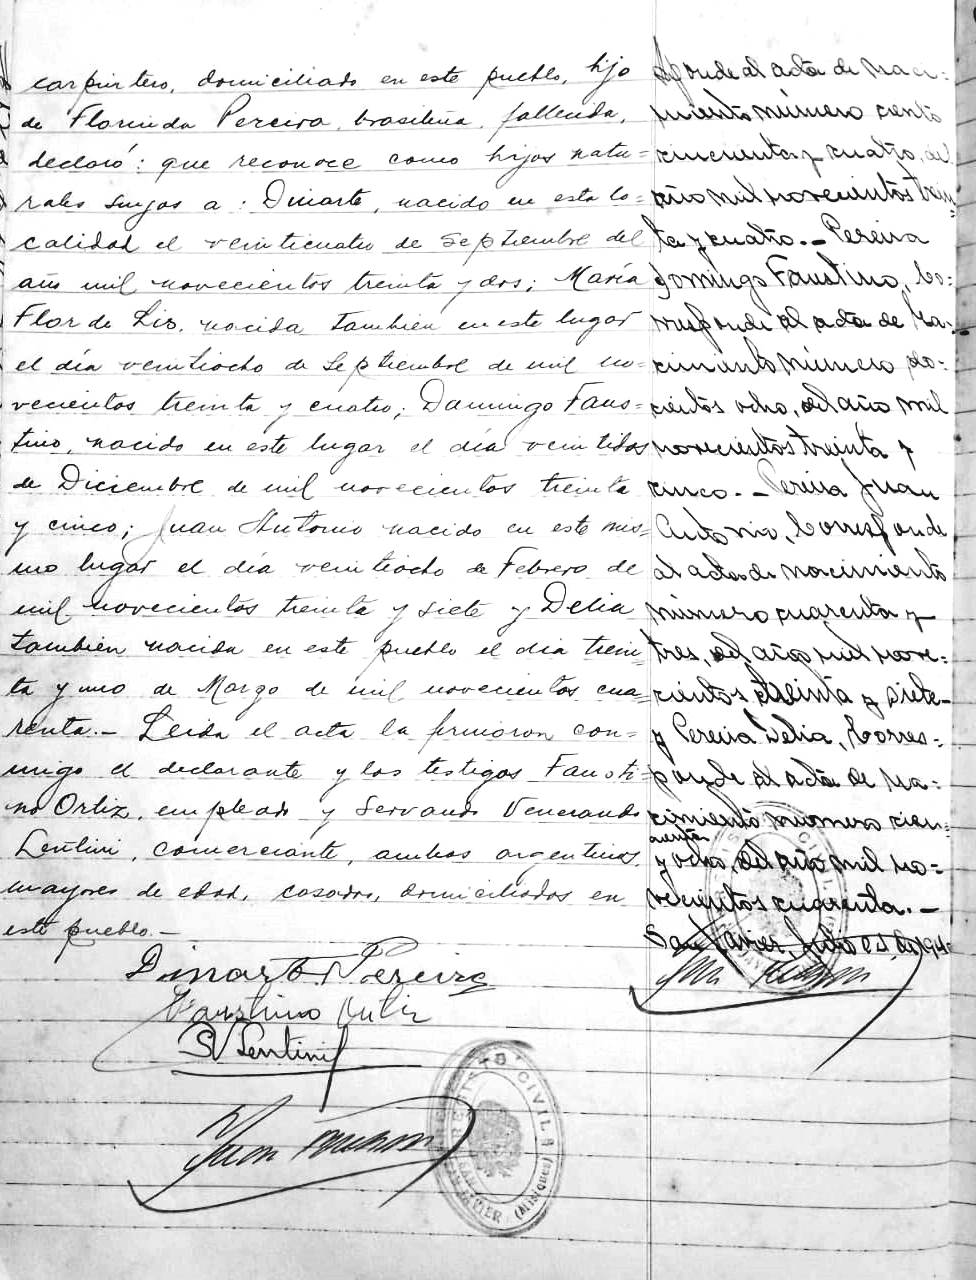 carpintero, domiciliado en este pueblo, hijo
de Florinda Pereira, brasileña, fallecida,
declaró: que reconoce como hijos natu=
rales suyos a: Dinarte, nacido en esta lo=
calidad el veinticuatro de Septiembre del
año mil novecientos treinta y dos; María
Flor de Lis, nacida tambien en este lugar
el día veintiocho de Septiembre de mil no=
vecientos treinta y cuatro; Domingo Faus=
tino, nacido en este lugar el día veintidos
de Diciembre de mil novecientos treinta
y cinco; Juan Antonio nacido en este mis=
mo lugar el día veintiocho de Febrero de
mil novecientos treinta y siete y Delia
tambien nacida en este pueblo el día trein=
ta y uno de Marzo de mil novecientos cua=
renta.- Leida el acta la firmaron con=
migo el declarante y los testigos Fausti=
no Ortiz, empleado y Servando Venerando
Lentini, comerciante, ambos argentinos,
mayores de edad, casados, domiciliados en
este pueblo.-
Dinarte Pereira
Faustino Ortiz
SV Lentini
Juan
REGISTRO CIVIL
SAN JAVIER (Misiones)
ponde al acta de naci=
miento número ciento
cincuenta y cuatro, del
año mil novecientos trein=
ta y cuatro.- Pereira
Domingo Faustino, Co=
rresponde al acta de Na=
cimiento número dos=
cientos ocho, del año mil
novecientos treinta y
cinco.- Pereira Juan
Antonio, Corresponde
al acta de nacimiento
número cuarenta y
tres, del año mil nove=
cientos treinta y siete-
y Pereira Delia, Corres=
ponde al acta de Na=
cimiento número cin=
cuenta
y ocho, del año mil no=
vecientos cuarenta.-
San Javier, Julio de 1940
Juan